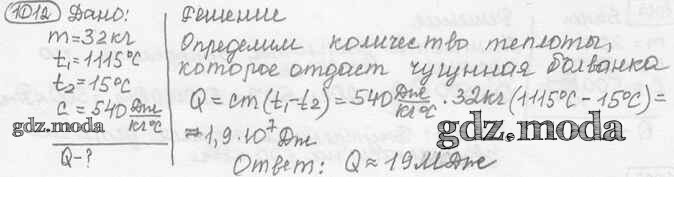 1012 Дано:
m=32кг
t₁=1115°C
t₂=15°C
c=540 Дж/кг°C
gdz.moda
Q-?
Решение
Определим количество теплоты,
которое отдаст чугунная болванка
Q=cm(t₁-t₂)=540 Дж/кг°C·32кг(1115°C-15°C)=
gdz.moda
≈1,9·10⁷Дж
Ответ: Q≈19МДж